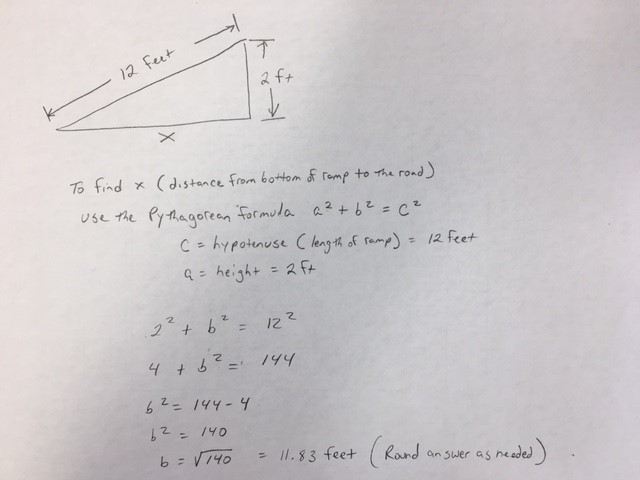 12 feet
2 ft
x
To find x (distance from bottom of ramp to the road)
use the Pythagorean formula a² + b² = c²
C = hypotenuse (length of ramp) = 12 feet
a = height = 2 ft
2² + b² = 12²
4 + b² = 144
b² = 144 - 4
b² = 140
b = √140 = 11.83 feet (Round answer as needed)